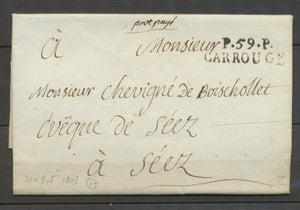 port payé
à Monsieur P.59.P.
CARROUGE
Monsieur Chevigné de Boischollet
Evêque de Séez
à Séez